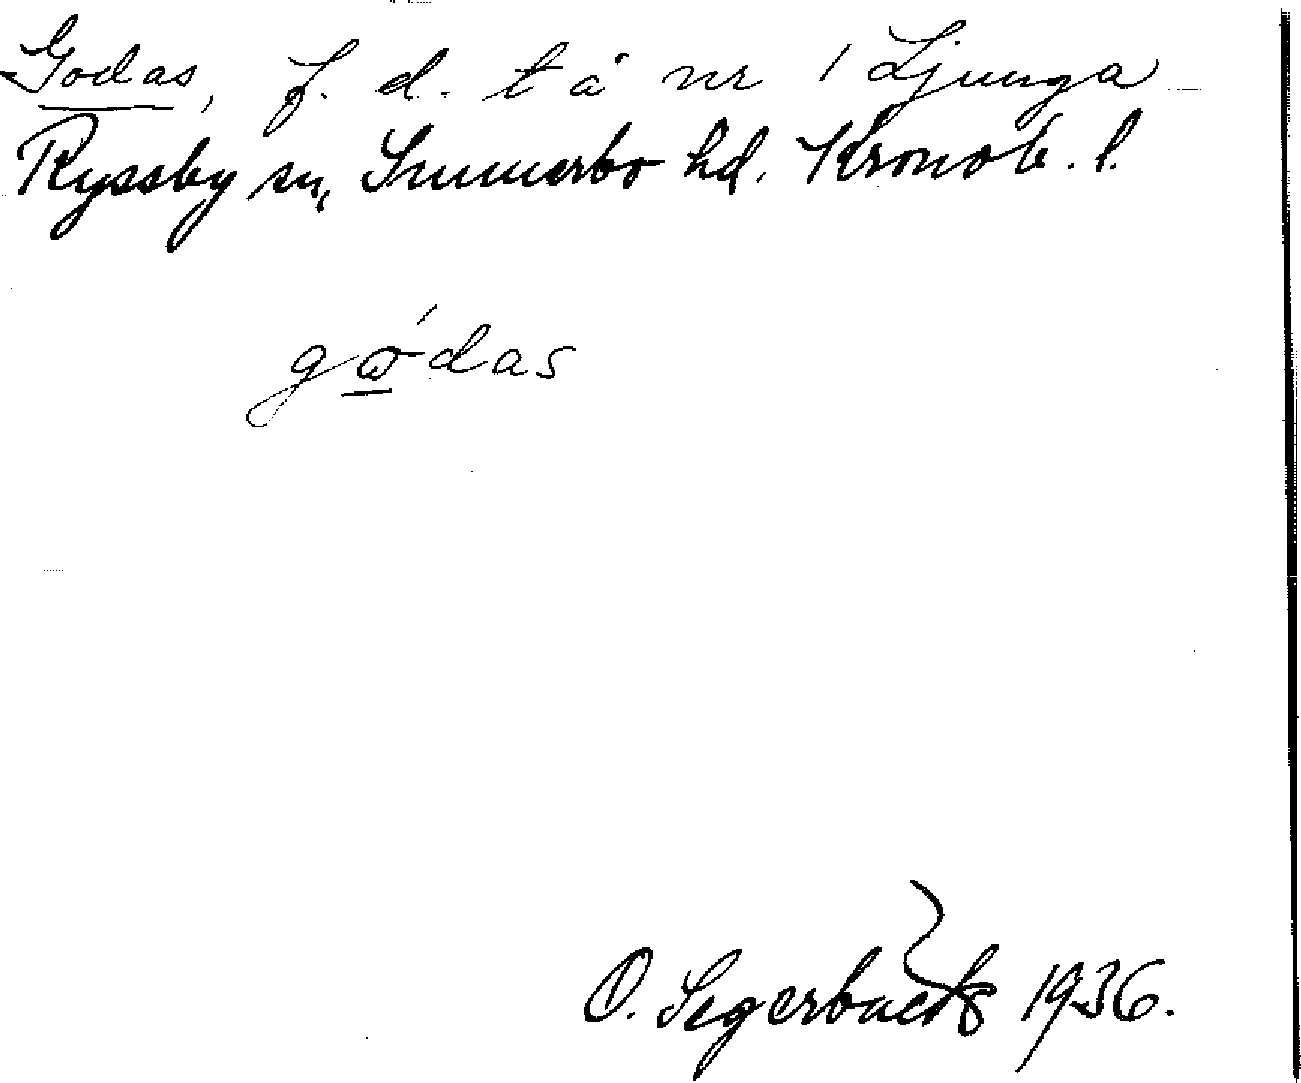 Godas, f. d. tå nr 1 Ljunga
Ryssby sn, Sunnerbo hd. Kronob. l.
gώdas
O. Segerbäck 1936.